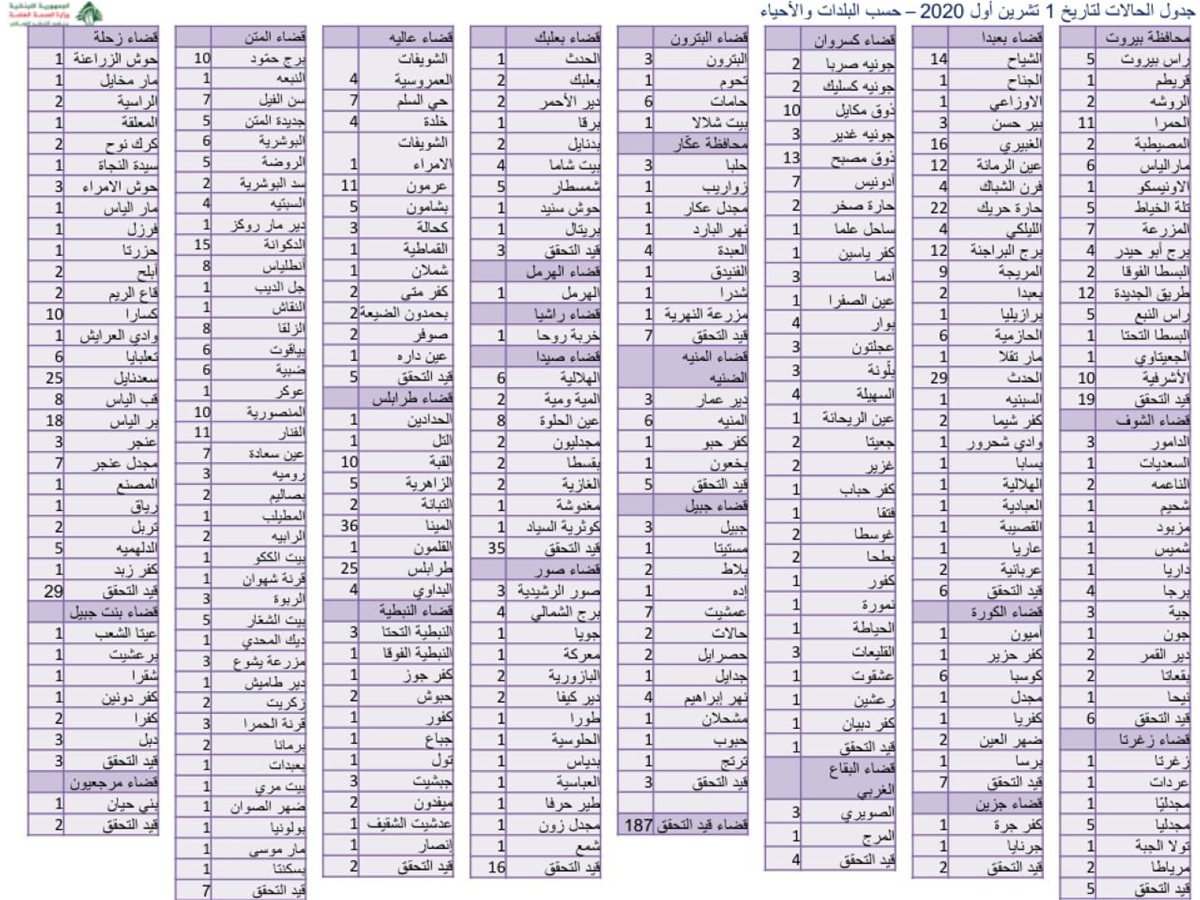 جدول الحالات لتاريخ 1 تشرين أول 2020 – حسب البلدات والأحياء
الجمهورية اللبنانية
وزارة الصحة العامة
محافظة بيروت
راس بيروت 5
قريطم 1
الروشه 2
الحمرا 11
المصيطبة 2
مارالياس 6
الاونيسكو 1
تلة الخياط 5
المزرعة 7
برج أبو حيدر 4
البسطا الفوقا 2
طريق الجديدة 12
راس النبع 5
البسطا التحتا 1
الجعيتاوي 1
الأشرفية 10
قيد التحقق 19
قضاء الشوف
الدامور 3
السعديات 1
الناعمه 2
شحيم 1
مزبود 1
شميس 1
داريا 1
برجا 4
جية 3
جون 1
دير القمر 2
بقعاتا 2
نيحا 1
قيد التحقق 6
قضاء زغرتا
زغرتا 1
عردات 1
مجدليّا 1
مجدليا 5
تولا الجبة 1
مرياطا 2
قيد التحقق 5
قضاء بعبدا
الشياح 14
الجناح 1
الاوزاعي 1
بير حسن 3
الغبيري 16
عين الرمانة 12
فرن الشباك 4
حارة حريك 22
الليلكي 4
برج البراجنة 12
المريجة 9
بعبدا 2
برازيليا 1
الحازمية 6
مار تقلا 1
الحدث 29
السبنيه 1
كفر شيما 2
وادي شحرور 1
بسابا 1
الهلالية 1
العبادية 1
القصيبة 1
عاريا 1
عربانية 2
قيد التحقق 6
قضاء الكورة
أميون 1
كفر حزير 1
كوسبا 6
مجدل 1
كفريا 1
ضهر العين 2
برسا 1
قيد التحقق 7
قضاء جزين
كفر جرة 1
جرنايا 1
قيد التحقق 2
قضاء كسروان
جونيه صربا 2
جونيه كسليك 2
ذوق مكايل 10
جونيه غدير 3
ذوق مصبح 13
أدونيس 7
حارة صخر 2
ساحل علما 1
كفر ياسين 1
أدما 3
عين الصفرا 1
بوار 4
عجلتون 3
بلّونة 3
السهيلة 4
عين الريحانة 1
جعيتا 2
غزير 2
كفر حباب 1
فتقا 1
غوسطا 2
بطحا 2
كفور 1
نمورة 1
الحياطة 1
القليعات 3
عشقوت 1
رعشين 1
كفر دبيان 1
قيد التحقق 1
قضاء البقاع
الغربي
الصويري 3
المرج 1
قيد التحقق 4
قضاء البترون
البترون 3
تحوم 1
حامات 6
بيت شلالا 1
محافظة عكّار
حلبا 3
زواريب 1
مجدل عكار 1
نهر البارد 1
العبدة 4
الفنيدق 1
شدرا 1
مزرعة النهرية 1
قيد التحقق 7
قضاء المنيه
الضنيه
دير عمار 3
المنيه 6
كفر حبو 1
بخعون 1
قيد التحقق 5
قضاء جبيل
جبيل 3
مستيتا 1
بلاط 2
إده 1
عمشيت 7
حالات 2
حصرايل 2
جدايل 1
نهر إبراهيم 4
مشحلان 1
حبوب 1
ترتج 1
قيد التحقق 3
قضاء قيد التحقق 187
قضاء بعلبك
الحدث 1
بعلبك 2
دير الأحمر 2
برقا 1
بدنايل 2
بيت شاما 4
شمسطار 5
حوش سنيد 1
بريتال 1
قيد التحقق 3
قضاء الهرمل
الهرمل 1
قضاء راشيا
خربة روحا 1
قضاء صيدا
الهلالية 6
المية ومية 2
عين الحلوة 8
مجدليون 2
بقسطا 2
الغازية 2
مغدوشة 1
كوثرية السياد 1
قيد التحقق 35
قضاء صور
صور الرشيدية 3
برج الشمالي 4
جويا 1
معركة 1
البازورية 2
دير كيفا 2
طورا 1
الحلوسية 1
بدياس 1
العباسية 1
طير حرفا 1
مجدل زون 1
شمع 1
قيد التحقق 16
قضاء عاليه
الشويفات
العمروسية 4
حي السلم 7
خلدة 4
الشويفات
الامراء 1
عرمون 11
بشامون 5
كحالة 3
القماطية 1
شملان 1
كفر متى 2
بحمدون الضيعة 2
صوفر 2
عين داره 1
قيد التحقق 5
قضاء طرابلس
الحدادين 1
التل 1
القبة 10
الزاهرية 5
التبانة 2
المينا 36
القلمون 1
طرابلس 25
البداوي 4
قضاء النبطية
النبطية التحتا 3
النبطية الفوقا 1
كفر جوز 1
حبوش 2
كفور 1
جباع 1
تول 1
جبشيت 3
ميفدون 2
عدشيت الشقيف 1
إنصار 1
قيد التحقق 2
قضاء المتن
برج حمّود 10
النبعه 1
سن الفيل 7
جديدة المتن 5
البوشرية 6
الروضة 5
سد البوشرية 2
السبتيه 4
دير مار روكز 1
الدكوانة 15
أنطلياس 8
جل الديب 1
النقاش 1
الزلقا 8
بياقوت 6
ضبية 6
عوكر 1
المنصورية 10
الفنار 11
عين سعادة 7
روميه 3
بصاليم 2
المطيلب 1
الرابيه 2
بيت الككو 1
قرنة شهوان 1
الربوة 3
بيت الشعّار 5
ديك المحدي 1
مزرعة يشوع 3
دير طاميش 1
زكريت 2
قرنة الحمرا 3
برمانا 2
بعبدات 1
بيت مري 1
ضهر الصوان 1
بولونيا 1
مار موسى 1
بسكنتا 1
قيد التحقق 7
قضاء زحلة
حوش الزراعنة 1
مار مخايل 1
الراسية 2
المعلقة 1
كرك نوح 2
سيدة النجاة 1
حوش الامراء 3
مار الياس 1
فرزل 1
حزرتا 1
أبلح 2
قاع الريم 2
كسارا 10
وادي العرايش 1
تعلبايا 6
سعدنايل 25
قب الياس 8
بر الياس 18
عنجر 3
مجدل عنجر 7
المصنع 1
رياق 1
تربل 2
الدلهميه 5
كفر زبد 1
قيد التحقق 29
قضاء بنت جبيل
عيتا الشعب 1
برعشيت 1
شقرا 1
كفر دونين 1
كفرا 2
دبل 3
قيد التحقق 3
قضاء مرجعيون
بني حيان 1
قيد التحقق 2